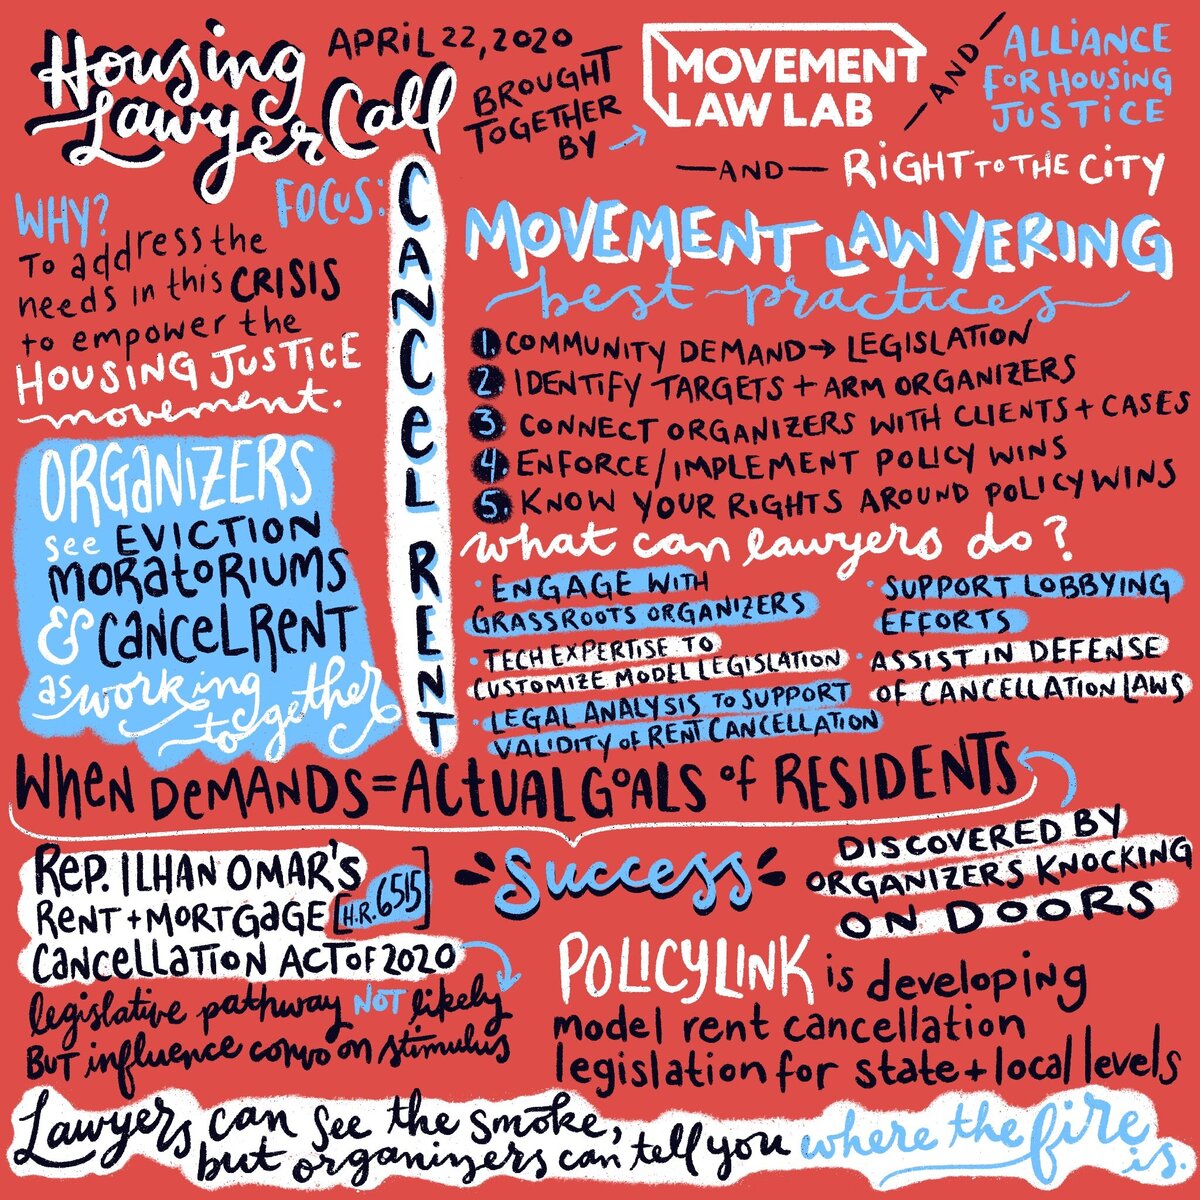 Housing
Lawyer Call
APRIL 22, 2020
BROUGHT
TOGETHER
BY
MOVEMENT
LAW LAB
—AND—
ALLIANCE
FOR HOUSING
JUSTICE
—AND— RIGHT TO THE CITY
WHY?
To address the
needs in this CRISIS
to empower the
HOUSING JUSTICE
movement.
FOCUS:
CANCEL RENT
ORGANIZERS
see EVICTION
MORATORIUMS
& CANCEL RENT
as working
together
MOVEMENT LAWYERING
best practices
1. COMMUNITY DEMAND → LEGISLATION
2. IDENTIFY TARGETS + ARM ORGANIZERS
3. CONNECT ORGANIZERS WITH CLIENTS + CASES
4. ENFORCE/IMPLEMENT POLICY WINS
5. KNOW YOUR RIGHTS AROUND POLICY WINS
what can lawyers do?
· ENGAGE WITH
GRASSROOTS ORGANIZERS
· TECH EXPERTISE TO
CUSTOMIZE MODEL LEGISLATION
· LEGAL ANALYSIS TO SUPPORT
VALIDITY OF RENT CANCELLATION
· SUPPORT LOBBYING
EFFORTS
· ASSIST IN DEFENSE
OF CANCELLATION LAWS
WHEN DEMANDS = ACTUAL GOALS OF RESIDENTS
Success
DISCOVERED BY
ORGANIZERS KNOCKING
ON DOORS
REP. ILHAN OMAR'S
RENT + MORTGAGE [H.R. 6515]
CANCELLATION ACT OF 2020
legislative pathway NOT likely
BUT influence convo on stimulus
POLICYLINK is developing
model rent cancellation
legislation for state + local levels
Lawyers can see the smoke,
but organizers can tell you where the fire is.